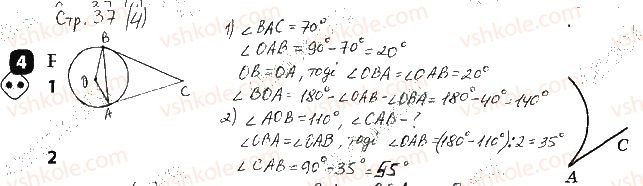 Стр. 37 (4)
1) ∠BAC = 70°
∠OAB = 90° - 70° = 20°
OB = OA, тоді ∠OBA = ∠OAB = 20°
∠BOA = 180° - ∠OAB - ∠OBA = 180° - 40° = 140°
2) ∠AOB = 110°, ∠CAB - ?
∠OBA = ∠OAB, тоді ∠OAB = (180° - 110°) : 2 = 35°
∠CAB = 90° - 35° = 55°
4
1
2
B
O
A
C
A
C
vshkole.com